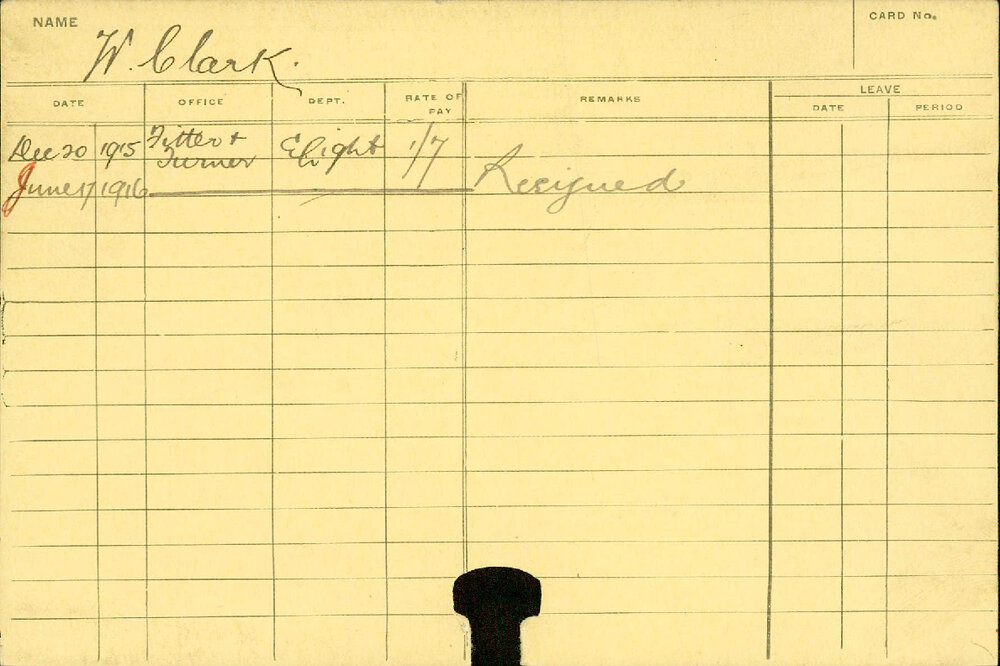 NAME
W. Clark.
CARD No.
DATE OFFICE DEPT. RATE OF PAY REMARKS LEAVE
DATE PERIOD
Dec 20 1915 Fitter + Turner E Light 1/7
June 17 1916 Resigned